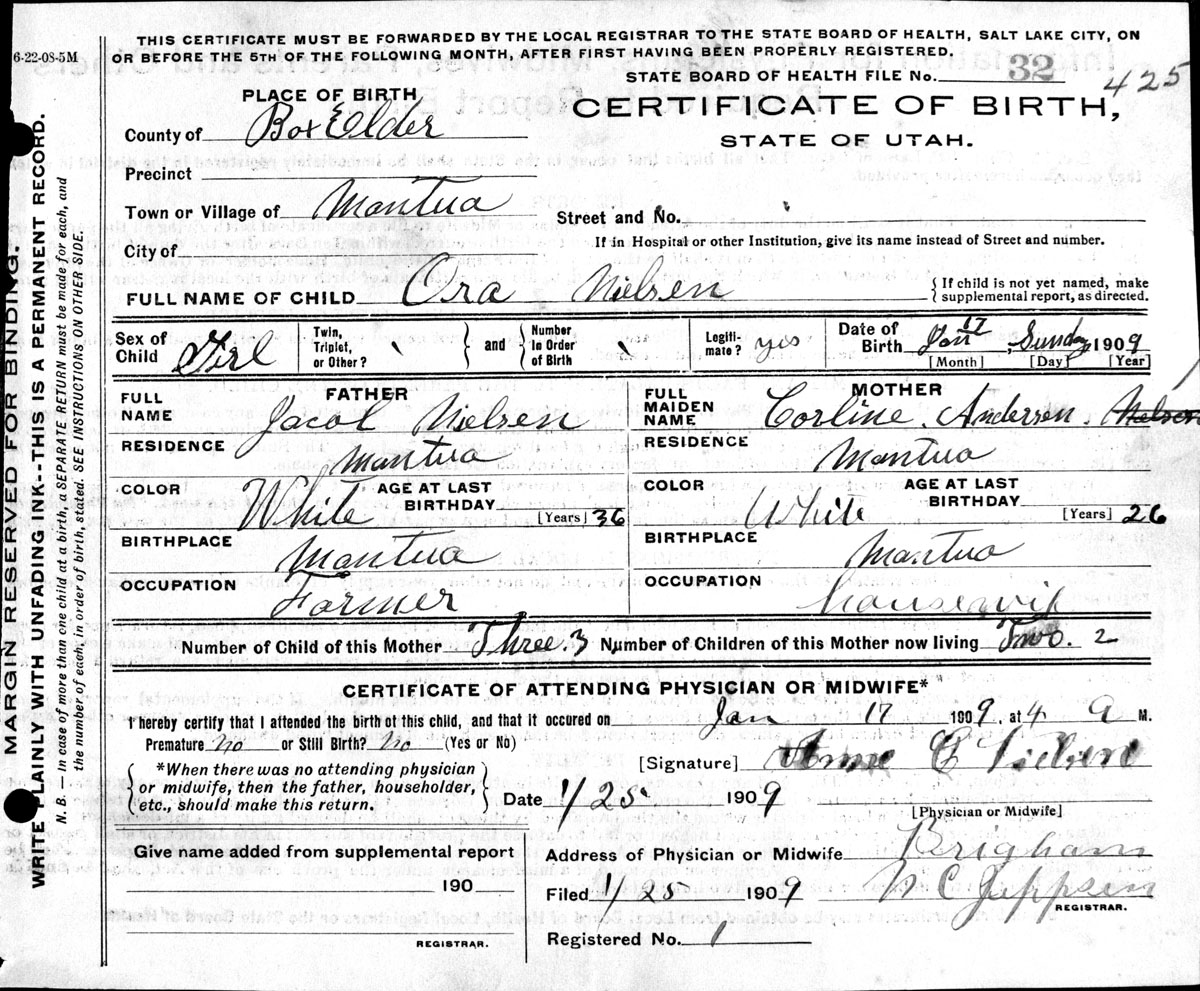 6-22-08-5M
THIS CERTIFICATE MUST BE FORWARDED BY THE LOCAL REGISTRAR TO THE STATE BOARD OF HEALTH, SALT LAKE CITY, ON
OR BEFORE THE 5TH OF THE FOLLOWING MONTH, AFTER FIRST HAVING BEEN PROPERLY REGISTERED.
STATE BOARD OF HEALTH FILE No. 32 425
PLACE OF BIRTH
CERTIFICATE OF BIRTH,
STATE OF UTAH.
County of Box Elder
Precinct
Town or Village of Mantua
Street and No.
If in Hospital or other Institution, give its name instead of Street and number.
City of
FULL NAME OF CHILD Ora Nielsen
{ If child is not yet named, make
supplemental report, as directed.
Sex of Child Girl
Twin, Triplet, or Other?
and
Number in Order of Birth
Legiti-mate? yes
Date of Birth Jan 17, Sunday 1909
[Month] [Day] [Year]
FATHER
FULL NAME Jacob Nielsen
RESIDENCE Mantua
COLOR White
AGE AT LAST BIRTHDAY [Years] 36
BIRTHPLACE Mantua
OCCUPATION Farmer
MOTHER
FULL MAIDEN NAME Corline Andersen Nielson
RESIDENCE Mantua
COLOR White
AGE AT LAST BIRTHDAY [Years] 26
BIRTHPLACE Mantua
OCCUPATION housewif
Number of Child of this Mother Three. 3 Number of Children of this Mother now living Two. 2
CERTIFICATE OF ATTENDING PHYSICIAN OR MIDWIFE*
I hereby certify that I attended the birth of this child, and that it occured on Jan 17 1909, at 4 a M.
Premature no or Still Birth? no (Yes or No)
[Signature]
{ *When there was no attending physician
or midwife, then the father, householder,
etc., should make this return. }
Date 1/25 1909
[Physician or Midwife]
Give name added from supplemental report
190
REGISTRAR.
Address of Physician or Midwife Brigham
Filed 1/25 1909 N C Jeppsen
REGISTRAR.
Registered No. 1
MARGIN RESERVED FOR BINDING.
WRITE PLAINLY WITH UNFADING INK--THIS IS A PERMANENT RECORD.
N. B. — In case of more than one child at a birth, a SEPARATE RETURN must be made for each, and
the number of each, in order of birth, stated. SEE INSTRUCTIONS ON OTHER SIDE.